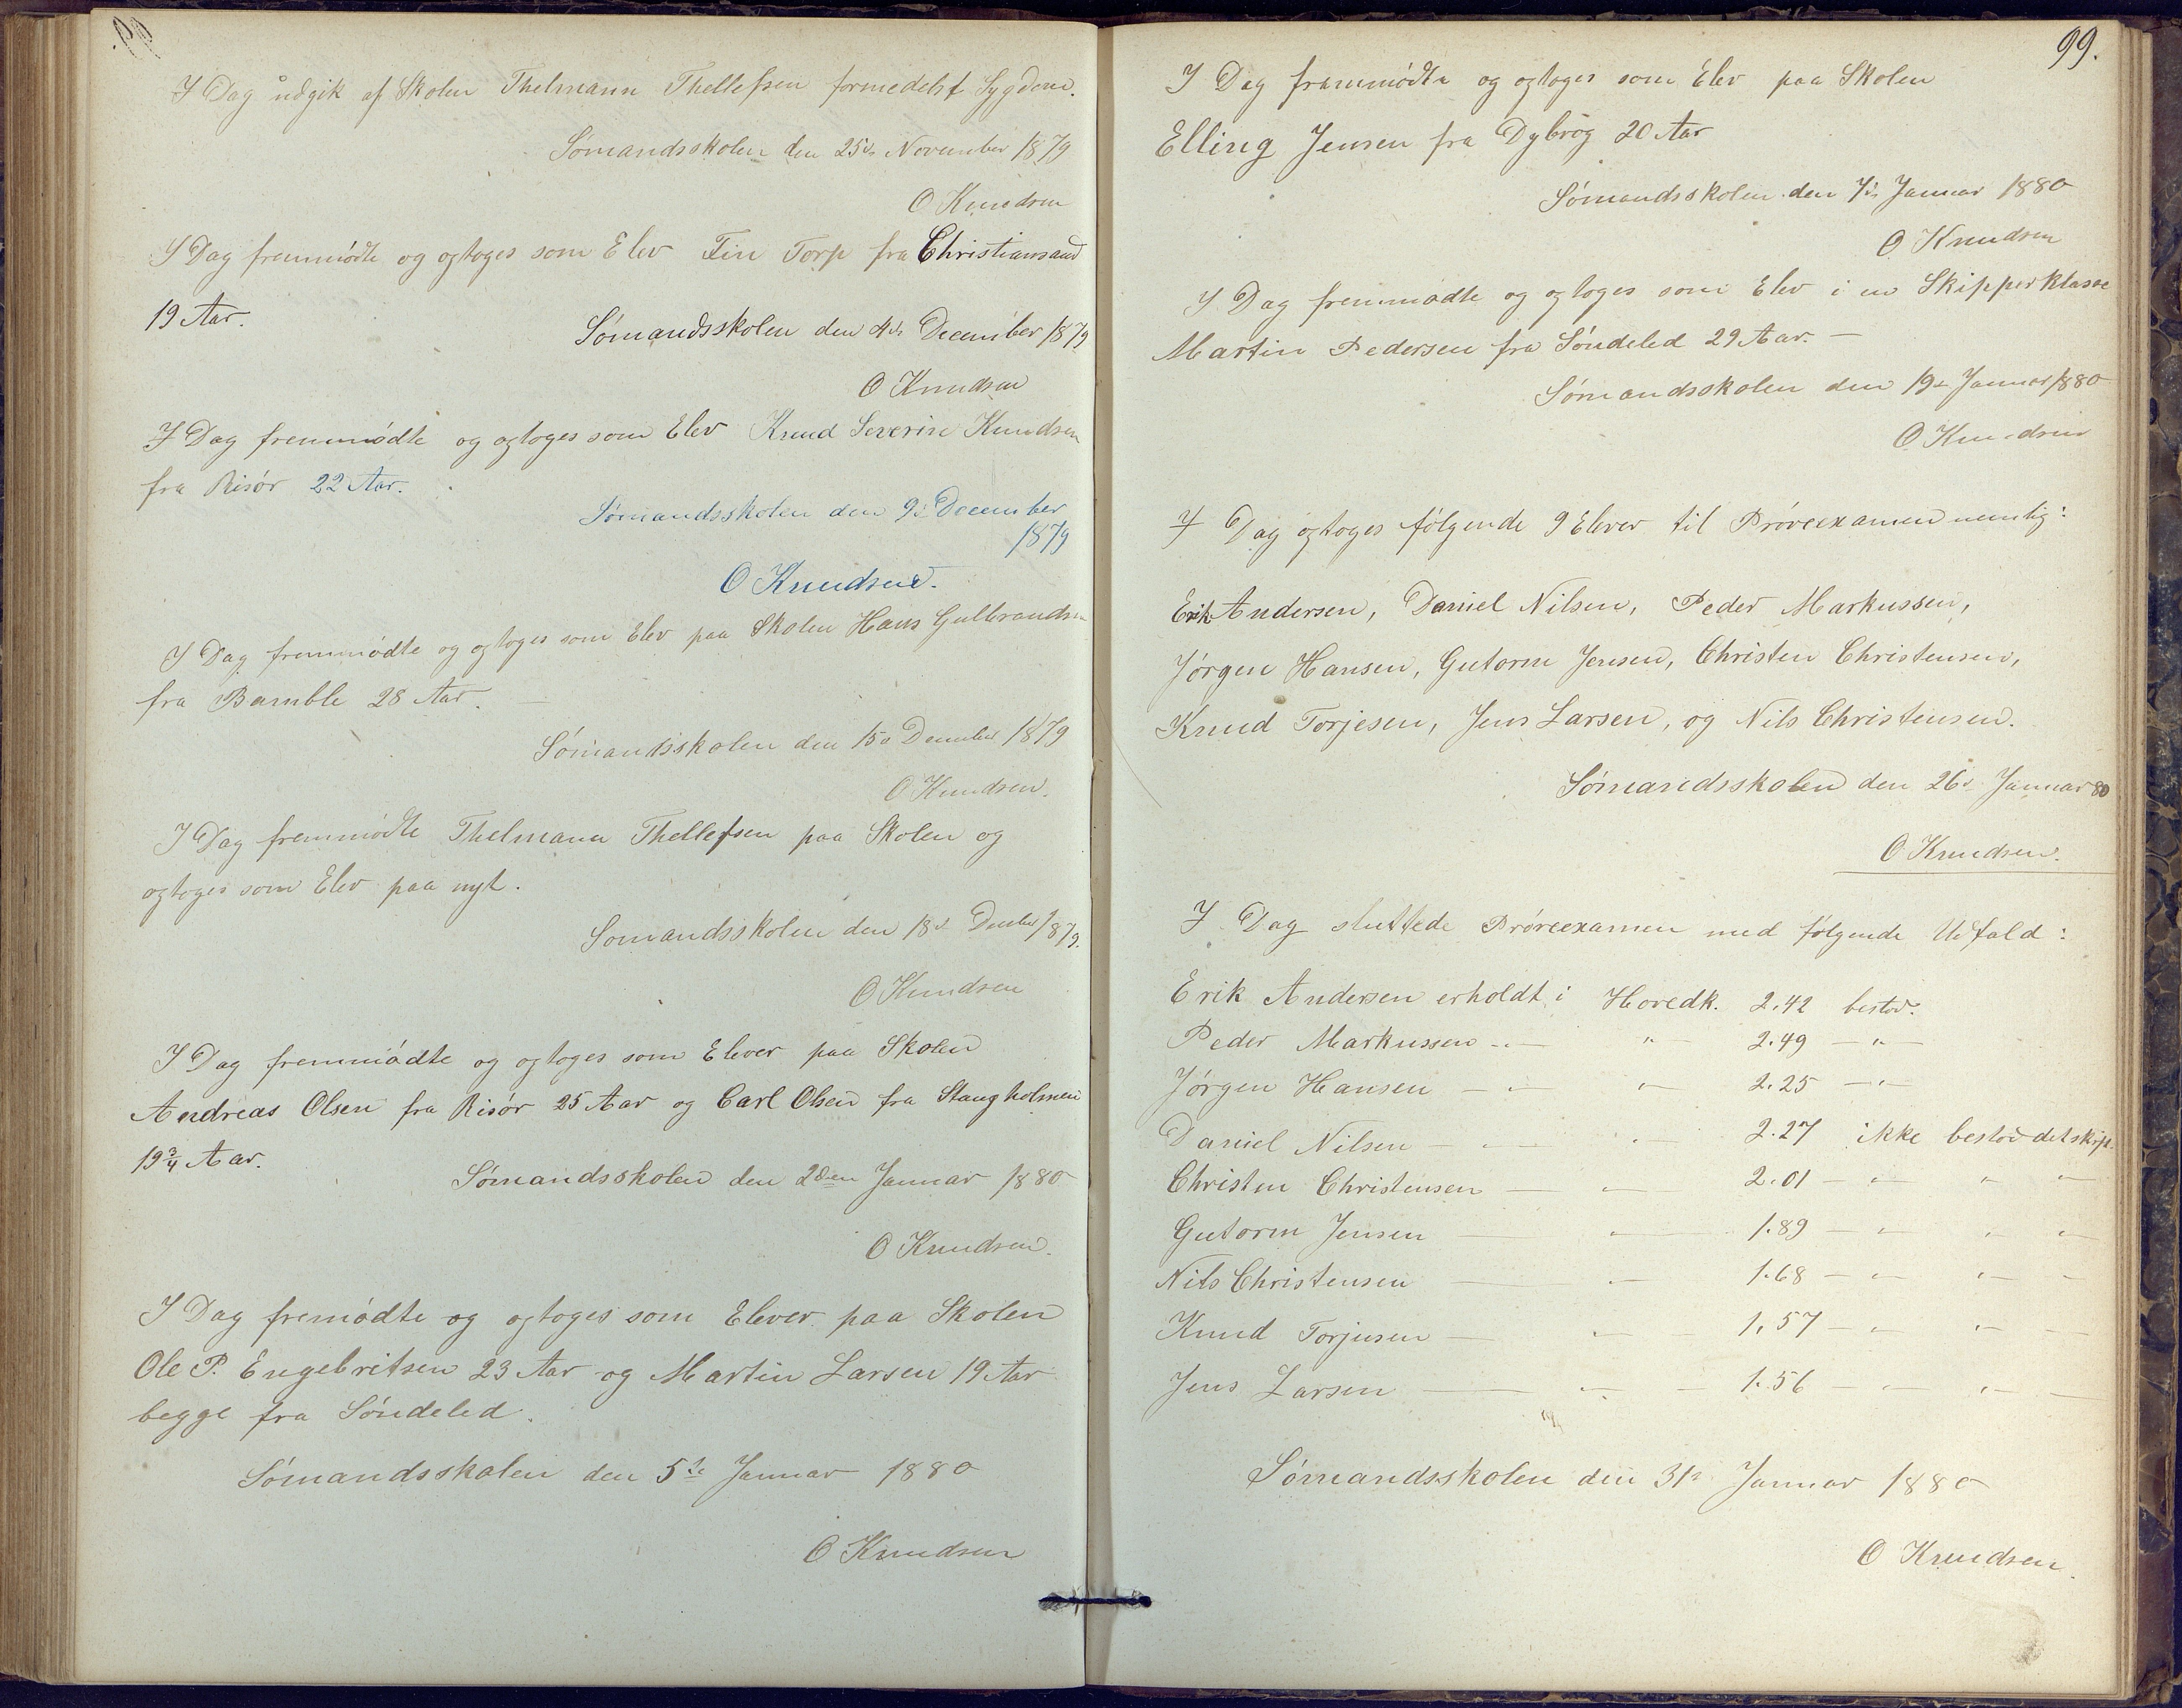 I Dag udgik af Skolen Thelmann Thellefsen formedelst Sygdom.
Sømandsskolen den 25de November 1879
O Knudsen
I Dag fremmødte og optoges som Elev Fin Torp fra Christiansand
19 Aar.
Sømandsskolen den 4de December 1879
O Knudsen
I Dag fremmødte og optoges som Elev Knud Severin Knudsen
fra Risør 22 Aar.
Sømandsskolen den 9de December
1879
O Knudsen.
I Dag fremmødte og optoges som Elev paa Skolen Hans Gulbrandsen
fra Bamble 28 Aar. —
Sømandsskolen den 15de December 1879
O Knudsen.
I Dag fremmødte Thelmann Thellefsen paa Skolen og
optoges som Elev paa nyt.
Sømandsskolen den 18de Decbr 1879.
O Knudsen
I Dag fremmødte og optoges som Elever paa Skolen
Andreas Olsen fra Risør 25 Aar og Carl Olsen fra Stangholmen
19 3/4 Aar.
Sømandsskolen den 2den Januar 1880
O Knudsen.
I Dag fremødte og optoges som Elever paa Skolen
Ole P. Engebritsen 23 Aar og Martin Larsen 19 Aar
begge fra Søndeled.
Sømandsskolen den 5te Januar 1880
O Knudsen
99.
I Dag fremmødte og optoges som Elev paa Skolen
Elling Jensen fra Dybvåg 20 Aar
Sømandsskolen den 7de Januar 1880
O Knudsen
I Dag fremmødte og optoges som Elev i en Skipperklasse
Martin Pedersen fra Søndeled 29 Aar. —
Sømandsskolen den 19de Januar 1880
O Knudsen
I Dag optoges følgende 9 Elever til Prøveexamen nemlig:
Erik Andersen, Daniel Nilsen, Peder Markussen,
Jørgen Hansen, Gutorm Jensen, Christen Christensen,
Knud Torjesen, Jens Larsen, og Nils Christensen.
Sømandsskolen den 26de Januar 80
O Knudsen.
I Dag sluttede Prøveexamen med følgende Udfald:
Erik Andersen erholdt i Hovedk. 2.42 bestod.
Peder Markussen — " — 2.49 — " —
Jørgen Hansen — " — " — 2.25 — " —
Daniel Nilsen — " — " — 2.27 ikke bestod det skip.
Christen Christensen — " — 2.01 — " — " —
Gutorm Jensen — " — 1.89 — " — " —
Nils Christensen — " — 1.68 — " — " —
Knud Torjusen — " — 1.57 — " — " —
Jens Larsen — " — 1.56 — " — " —
Sømandsskolen den 31te Januar 1880
O Knudsen.